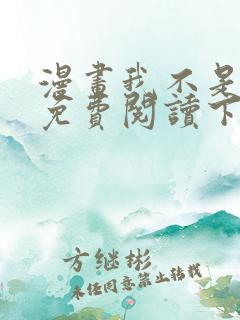 漫畫我不是
免費閱讀下
方继彬
未经同意禁止转载